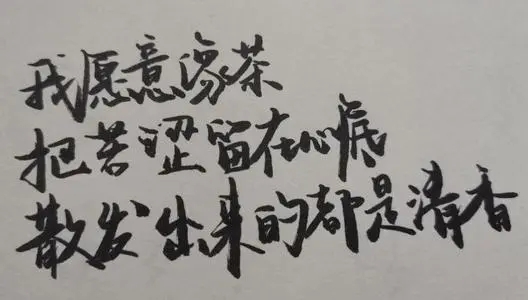 我愿意像茶
把苦涩留在心底
散发出来的都是清香